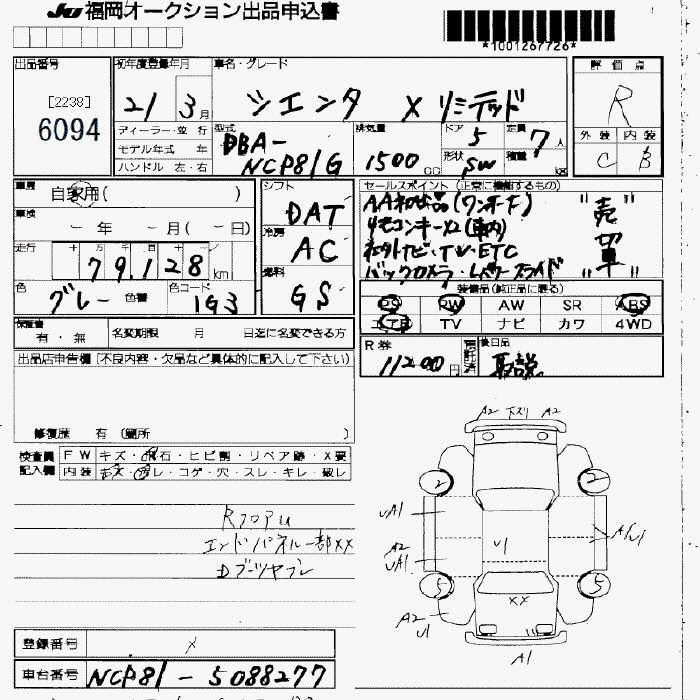 JU 福岡オークション出品申込書
*1001267726*
出品番号 [2238] 6094
初年度登録年月 21 3月
車名・グレード シエンタ X リミテッド
評価点 R
外装 C 内装 B
ディーラー・並行
モデル年式 年
ハンドル 左・右
型式 DBA-NCP81G
排気量 1500 CC
ドア 5
定員 7人
形状 SW
積量 kg
車歴 自家用( )
車検 - 年 - 月(- 日)
走行 十 万 千 百 十 79,128 km
色 グレー 色番 色コード 1G3
シフト DAT
冷房 AC
燃料 GS
セールスポイント(正常に機能するもの)
AA初出品(ワンオーナー) "売
リモコンキーX2(車内) 切
社外ナビ・TV・ETC 車"
バックカメラ・Lパワースライド
装備品(純正品に限る)
PS PW AW SR ABS
エアB TV ナビ カワ 4WD
保証書 有・無
名変期限 月 日迄に名変できる方
R券 11200円 預託済
後日品 取説
出品店申告欄(不良内容・欠品など具体的に記入して下さい)
修復歴 有(箇所 )
検査員記入欄
FW キズ・飛石・ヒビ割・リペア跡・X要
内装 キズ・汚レ・コゲ・穴・スレ・キレ・破レ
RフロアU
エンドパネル一部XX
Dブーツヤブレ
A2 下スリ A2
2 2
UA1
A2
UA1
U1
A1U1
5 5
XX
A2
U1
A1
登録番号 X
車台番号 NCP81-5088277